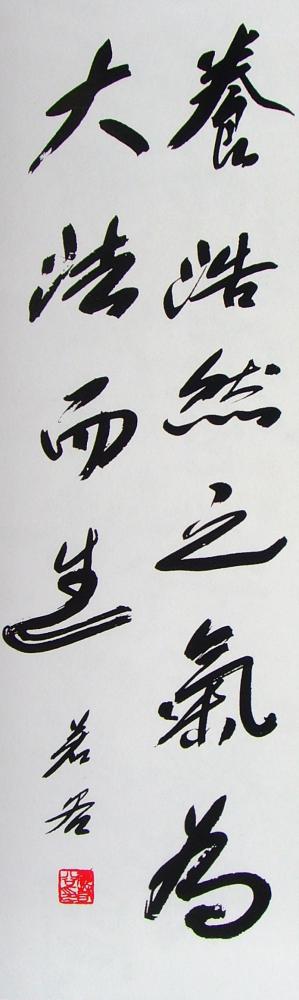 養浩然之氣為
大法而生
若谷